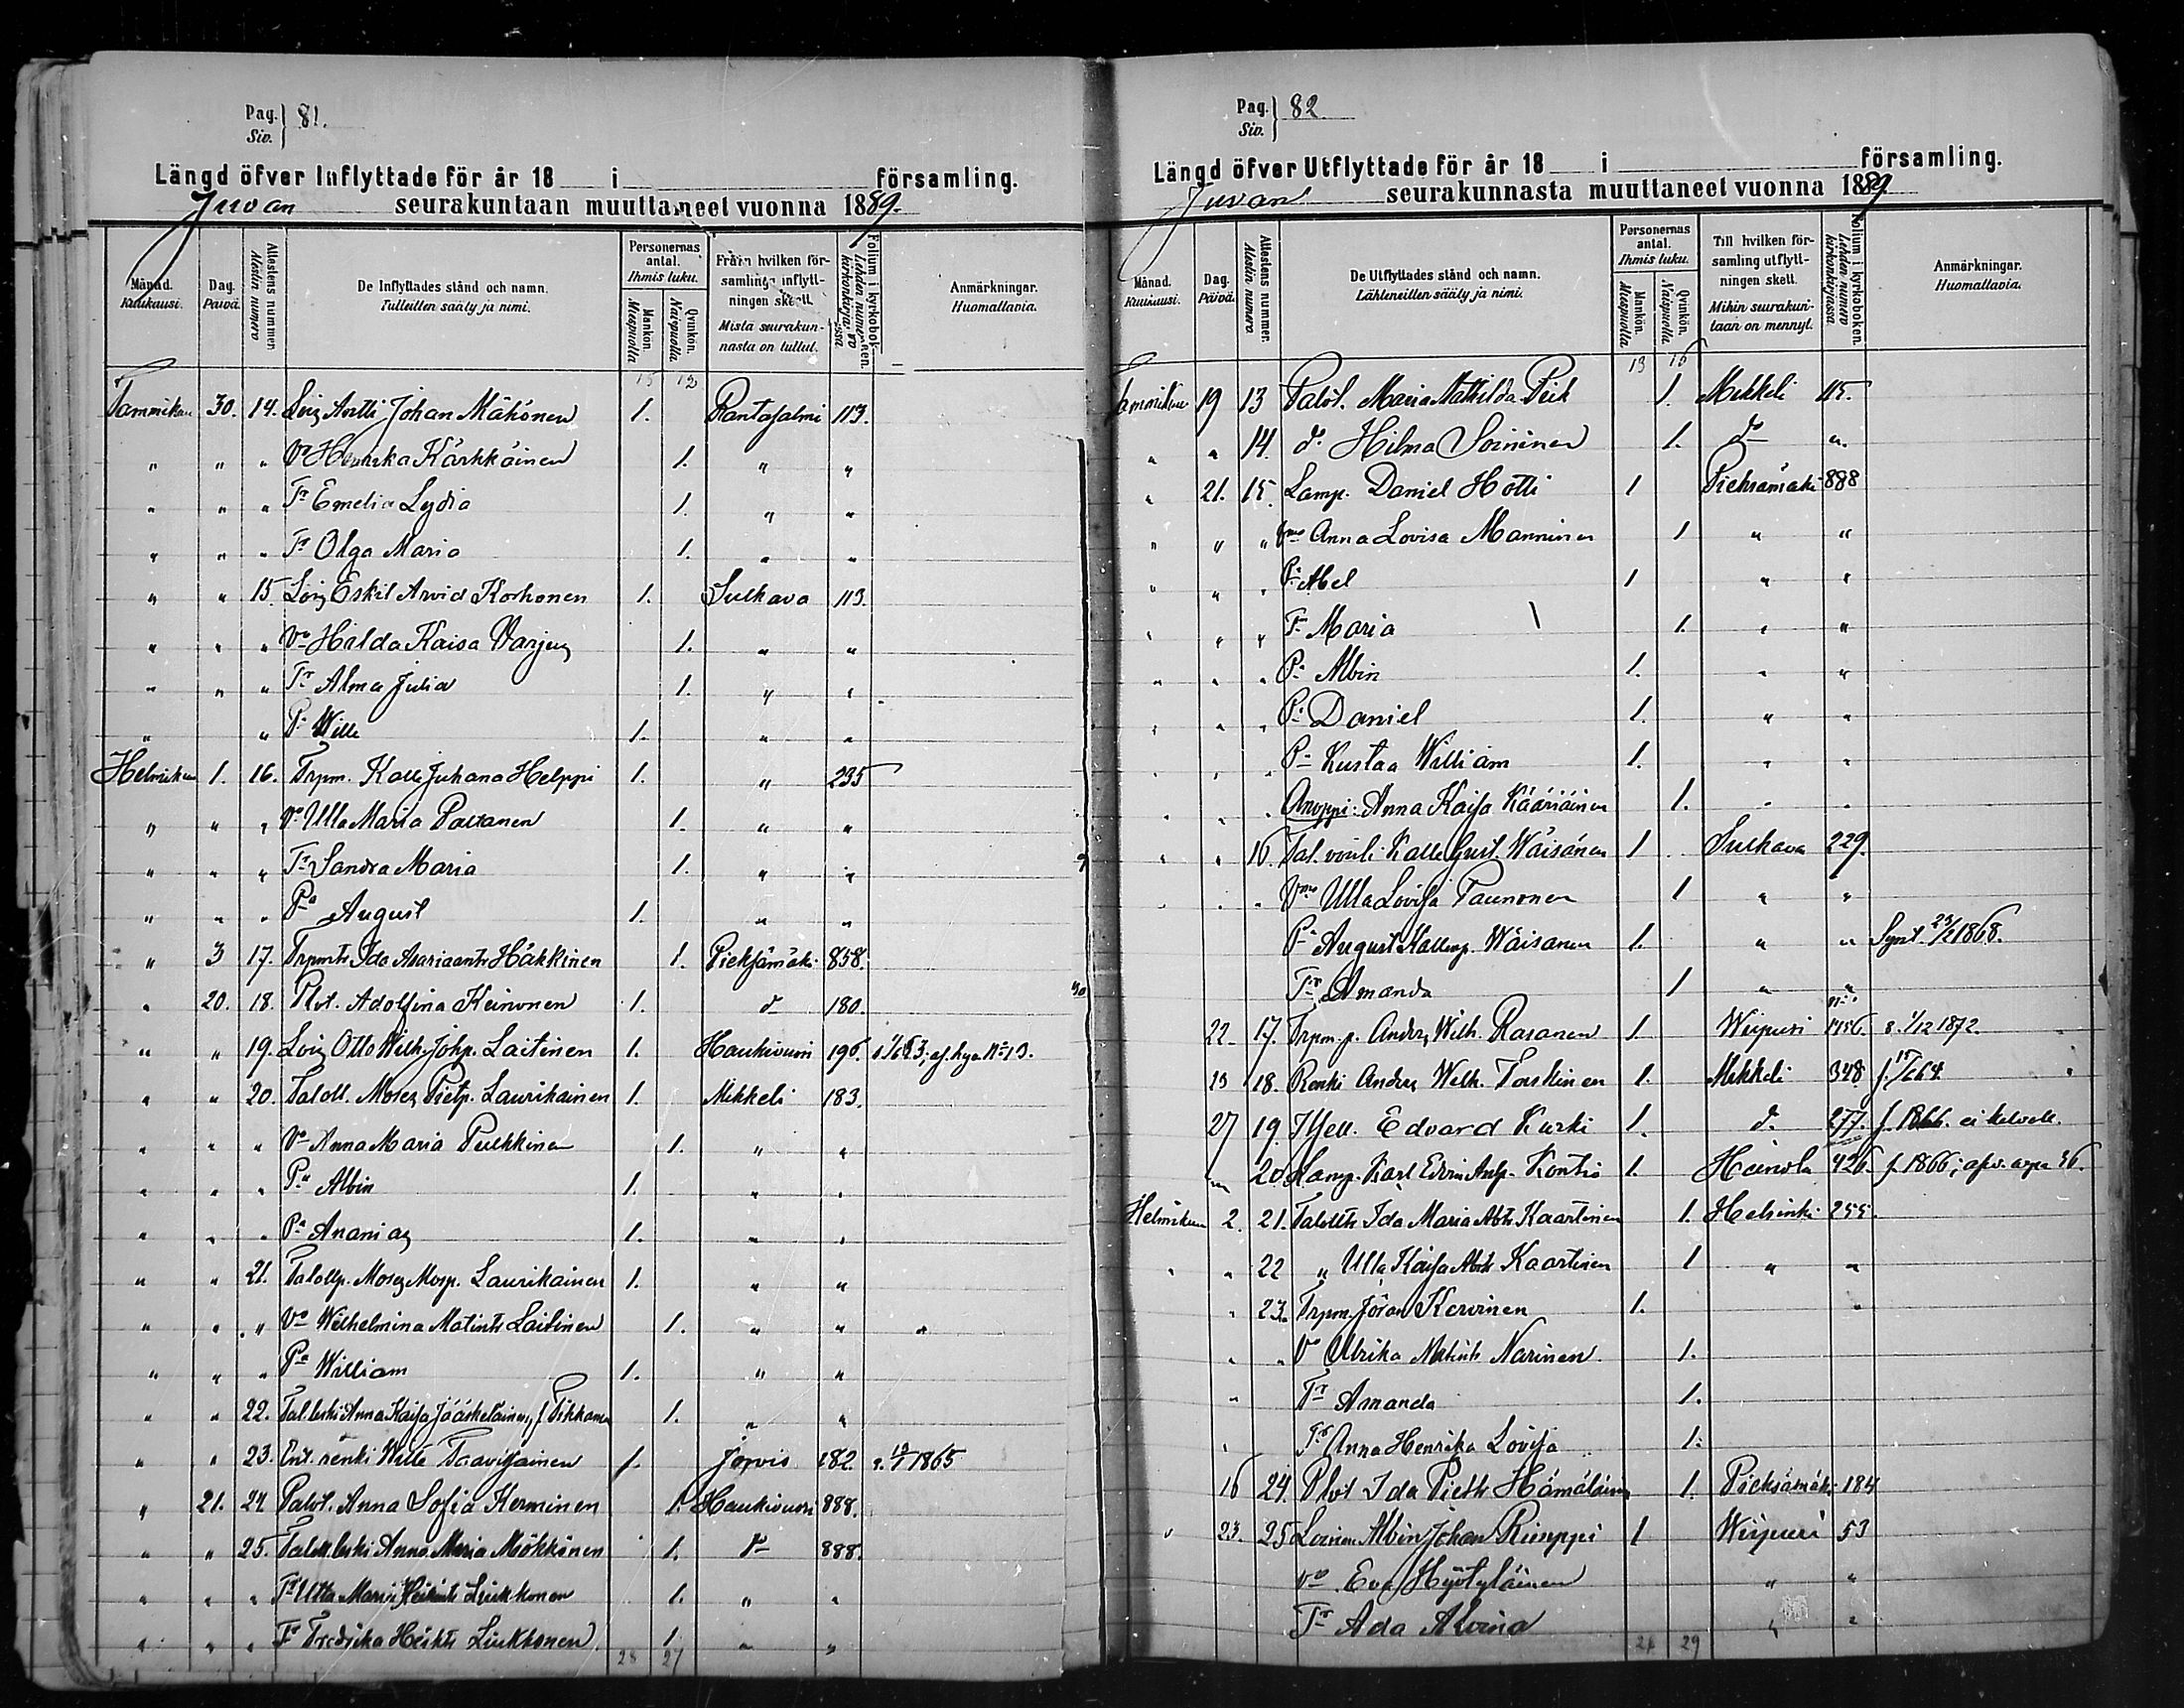 Pag. Siv. } 81.
Längd öfver Inflyttade för år 18 i församling.
Juvan seurakuntaan muuttaneet vuonna 1889.
Månad. Kuukausi. Dag. Päivä. Attestens nummer. Atestin numero De Inflyttades stånd och namn. Tulleitten sääty ja nimi. Personernas antal. Ihmis luku. Mankön. Miespuolia Qvinkön. Naispuolia Från hvilken församling inflyttningen skett. Mistä seurakunnasta on tullut. Folium i kyrkoboken. Lehden numero kirkonkirjassa Anmärkningar. Huomattavia.
15 12
Tammikuu 30. 14. Lois Antti Johan Mähönen 1. Rantasalmi 113.
" " " Vo Henrika Kärkkäinen 1. " "
" " " Tr Emelia Lydia 1. " "
" " " Tr Olga Maria 1. " "
" " 15. Lois Eskil Arvid Korhonen 1. Sulkava 113.
" " " Vo Hilda Kaisa Varjus 1. " "
" " " Tr Alma Julia 1. " "
" " Pa Wille 1. " "
Helmikuu 1. 16. Trpm. Kalle Juhana Helppi 1. " 235
" " " Vo Ulla Maria Paltanen 1. " "
" " " Tr Sandra Maria 1. " "
" " " Pa August 1. " "
" 3 17. Trpmtr Ida Asariaantr Häkkinen 1. Pieksämäki 858.
" 20. 18. Plvt. Adolfina Keinonen 1. do 180.
" " 19. Lois Otto Wilh. Johp. Laitinen 1. Haukivuori 196.
" " 20. Taloll. Moses Pietp. Laurikainen 1. Mikkeli 183.
" " " Vo Anna Maria Pulkkinen 1. " "
" " " Pa Albin 1. " "
" " " Pa Ananias 1. " "
" " 21. Talollp. Moses Mosp. Laurikainen 1. " "
" " " Vo Wilhelmina Matintr Laitinen 1. " "
" " " Pa William 1. " "
" " 22. Tal.leski Anna Kaisa Jääskeläinen, f. Tikkanen 1. " "
" " 23. Ent. renki Wille Paavilainen 1. Jorvis 182. 1865
" 21. 24. Palvt. Anna Sofia Kerminen 1. Haukivuori 888.
" " 25. Talollleski Anna Maria Mökkönen 1. do 888.
" " " Tr Ulla Maria Heikintr Liukkonen 1. " "
" " " Tr Fredrika Heiktr Liukkonen 1. " "
28 27
Pag. Siv. } 82.
Längd öfver Utflyttade för år 18 i församling.
Juvan seurakunnasta muuttaneet vuonna 1889
Månad. Kuukausi. Dag. Päivä. Attestens nummer. Atestin numero De Utflyttades stånd och namn. Lähteneitten sääty ja nimi. Personernas antal. Ihmis luku. Mankön. Miespuolia Qvinkön. Naispuolia Till hvilken församling utflyttningen skett. Mihin seurakuntaan on mennyt. Folium i kyrkoboken. Lehden numero kirkonkirjassa. Anmärkningar. Huomattavia.
13 16
Tammikuu 19 13 Palvt. Maria Mathilda Piik 1. Mikkeli 115.
" " 14. do Hilma Soininen 1. do "
" 21. 15. Lamp. Daniel Hotti 1 Pieksämäki 888
" " " Vmo Anna Lovisa Manninen 1 " "
" " " Pa Abel 1 " "
" " " Tr Maria 1. " "
" " " Pa Albin 1. " "
" " " Pa Daniel 1. " "
" " " Pa Kustaa William 1. " "
" " " Anoppi: Anna Kaisa Kääriäinen 1. " "
" " 16. Tal. vouti Kalle Gust. Wäisänen 1 Sulkava 229.
" " " Vmo Ulla Lovisa Paunonen 1 " "
Pa August Kallenp. Wäisänen 1. " " Synt. 23/2 1868.
Tr Amanda 1 " "
22 17. Trpm.p. Anders Wilh. Rasanen 1. Wiipuri 1756. s. 1/12 1872.
" 18. Renki Anders Wilh. Torskinen 1. Mikkeli 348
27 19. Itsell. Edvard Kurki 1. do 277. f. 1866.
" 20 Lamp. Karl Edvin Antp. Kontio 1. Heinola 426. f. 1866;
Helmikuu 2. 21. Talolltr Ida Maria Abtr Kaartinen 1. Helsinki 255.
" " 22 " Ulla Kaisa Abtr Kaartinen 1 " "
" 23. Trpm. Jöran Kervinen 1. "
" " Vo Ulrika Matintr Narinen 1.
" Tr Amanda 1.
" Tr Anna Henrika Lovisa 1.
16 24. Plvt Ida Pietr Hämäläinen 1. Pieksämäki 184
" 23. 25 Loinen Albin Johan Rimppi 1 Wiipuri 53
Vo Eva Hyötyläinen " "
Tr Ada Alvina " "
24 29